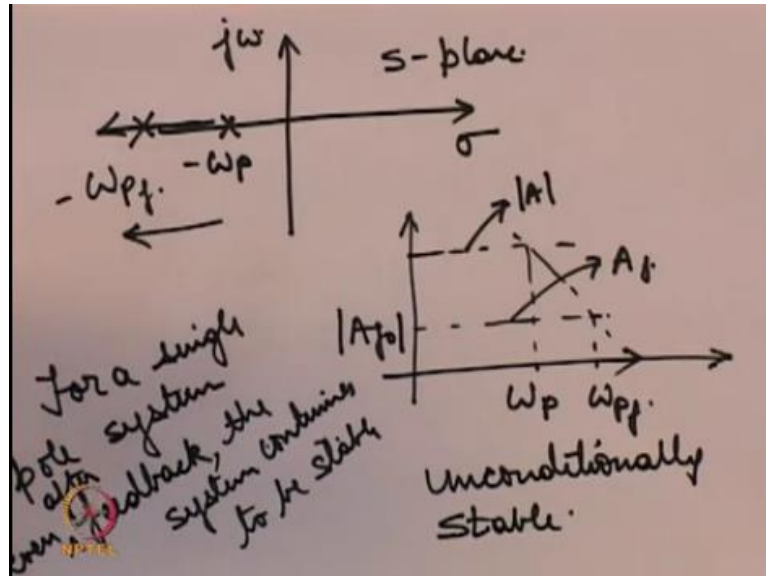 jω
s-plane.
σ
-ωp
-ωpf.
|A|
Af.
|Afo|
ωp
ωpf.
For a single
pole system
even after feedback, the
system continues
to be stable
Unconditionally
Stable.
NPTEL